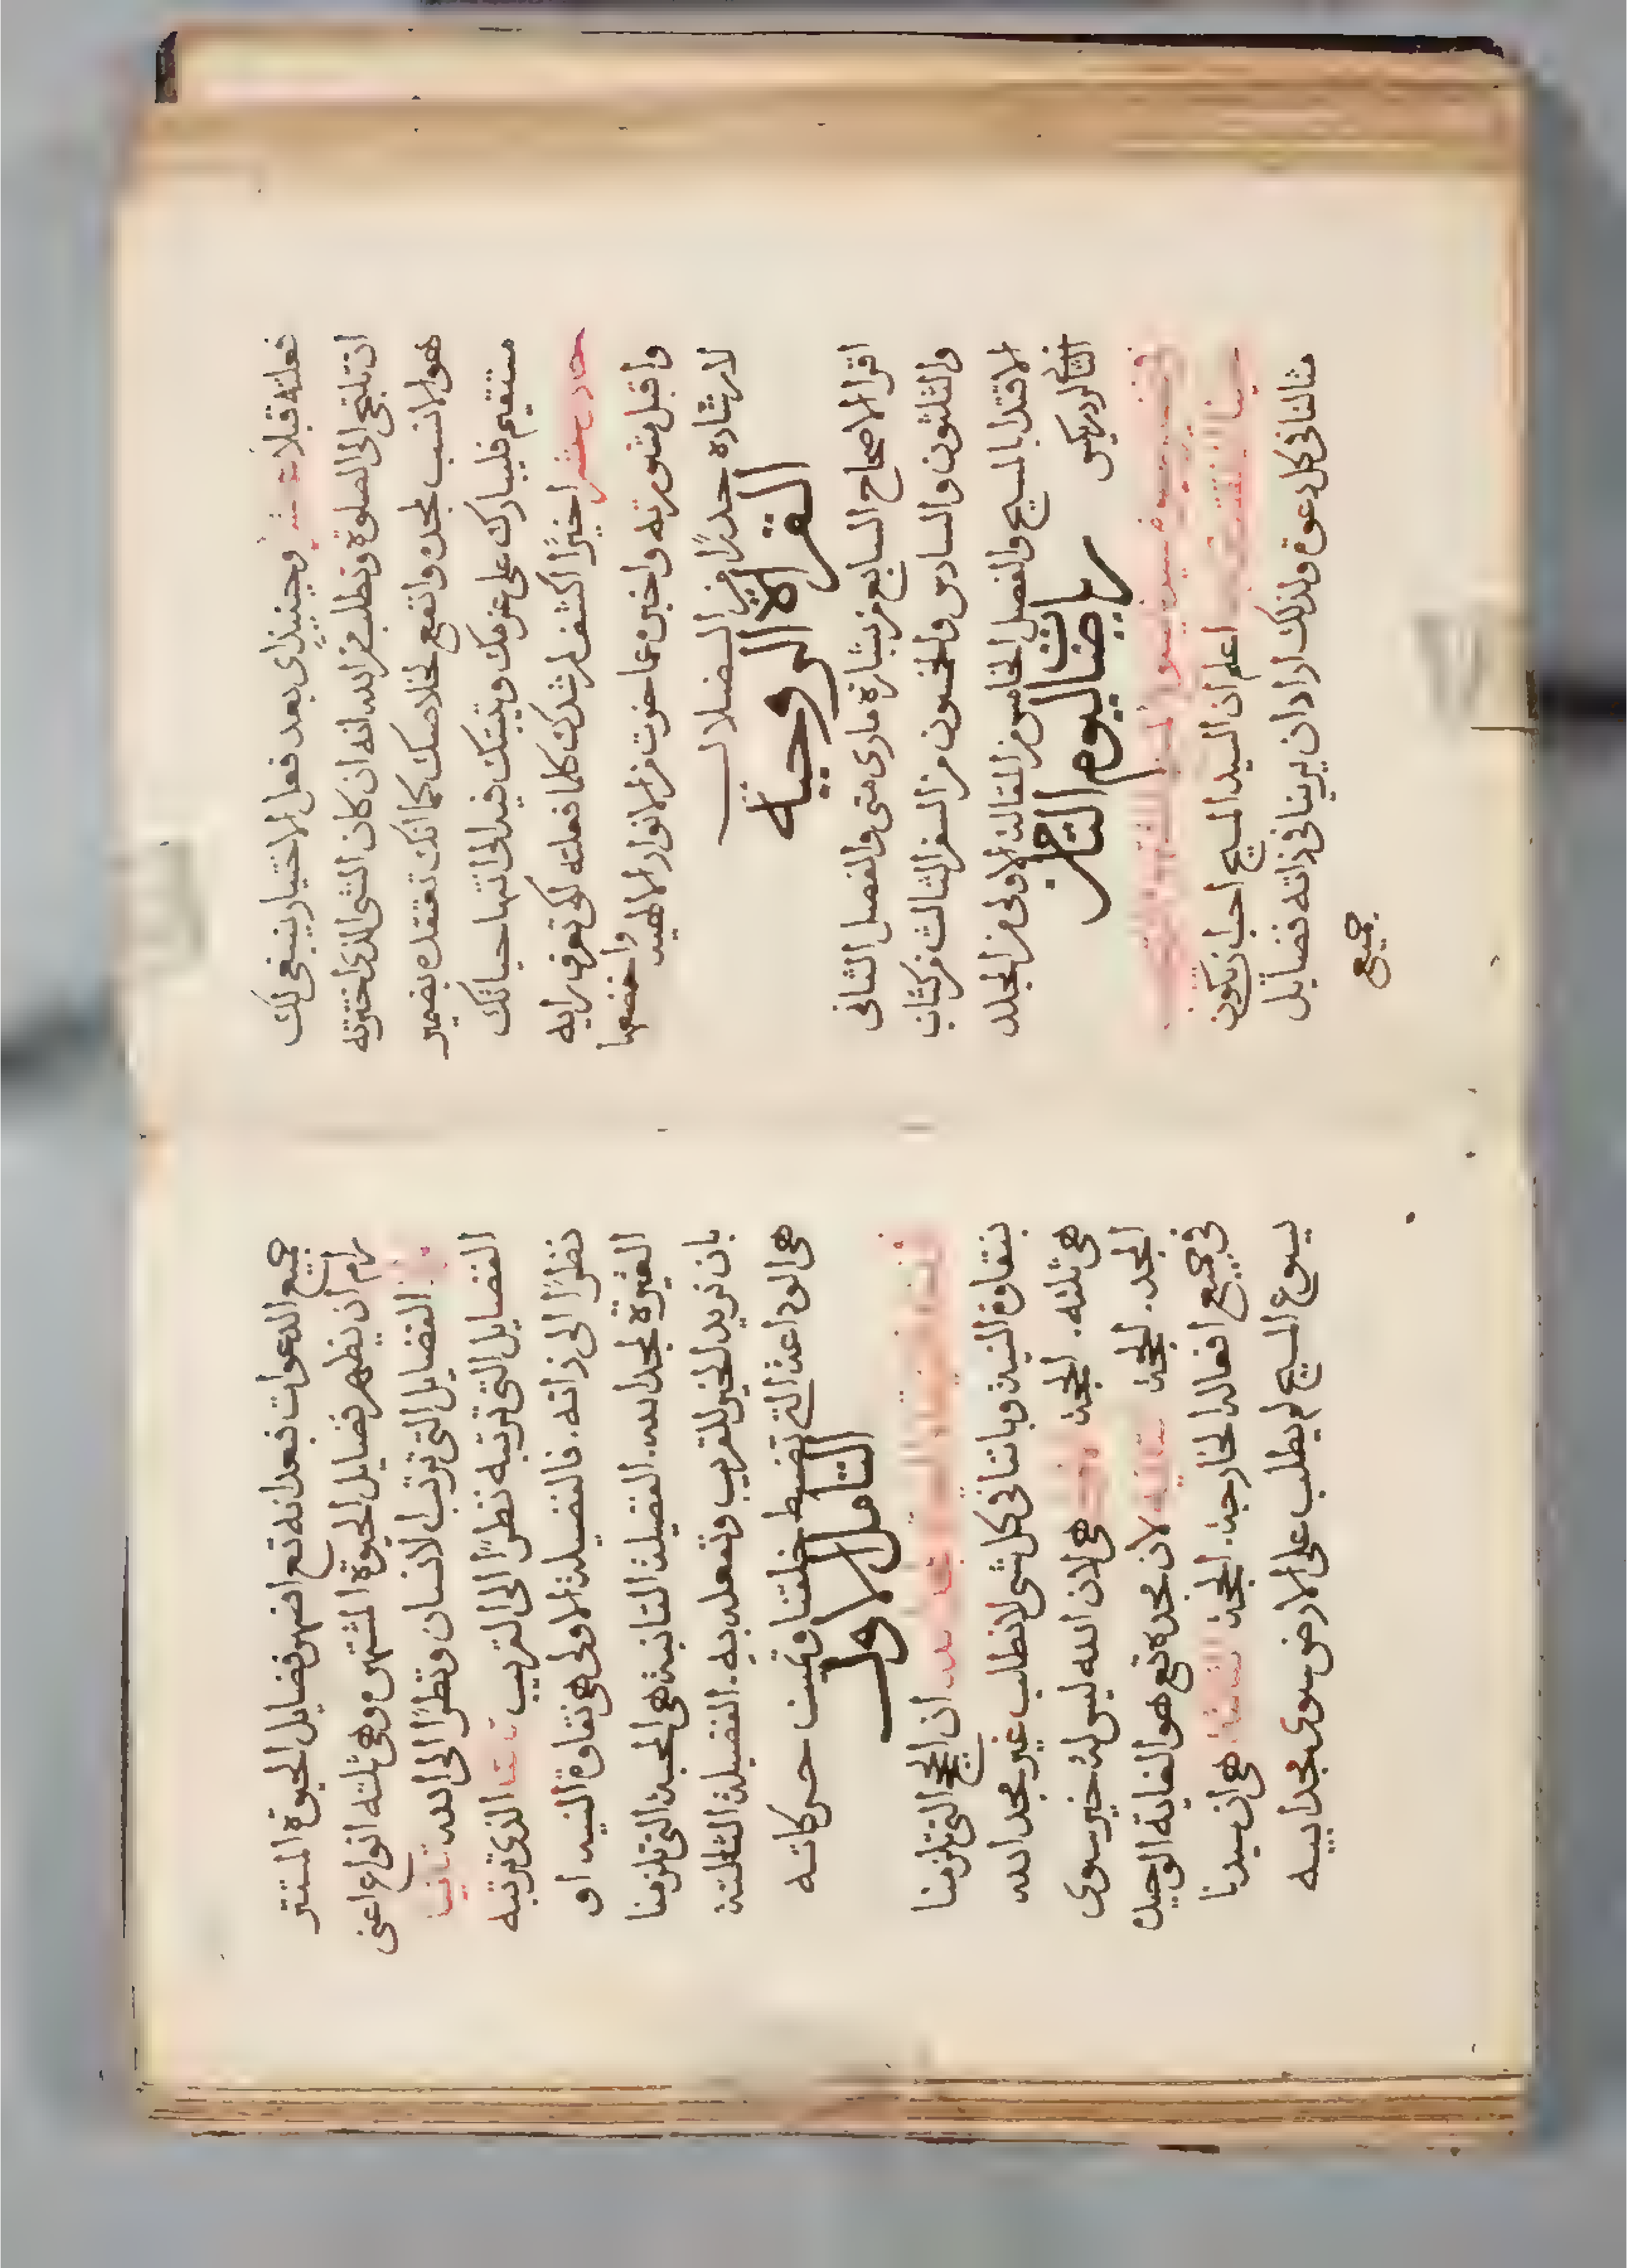 فعلته قبلاً وحينيذٍ اي بعد فعل الاختيار ينبغي لك
ان تلتجي الى الصلوة وتطلب من الله انه ان كان الشي الذي اخترته
هو الانسب لمجده وانفع لخلاصك كما انك تعتقده بضمير
مستقيم فليبارك على عزمك ويثبتك فيه الى انتها حياتك
حادي عشر اخيرًا اكشف لمرشدك كلما فعلته لكي تعرف رايه
واقبل مشورته واخبره عما حزت من الانوار الالهيه واخضعها
لارشاده حذرًا من الضلال
القراة الروحيه
اقرا الاصحاح السابع من بشارة ماري متى والفصل الثاني
والثلثون والسادس والخمسون من السفر الثالث من كتاب
الاقتدا بالمسيح والفصل الخامس من المقالة الاولى من المجلد
الثاني لرودريكس
رياضات اليوم الثامن
اعلم ان السيد المسيح احب ان يكون
مثالنا في كل دعوة ولذلك اراد ان يرينا في ذاته فضايل
جميع
جميع الدعوات فبعد انه تع اشهر فضايل الحيوة المستتر
رام ان يظهر فضايل الحيوة المشتهره وهي ثلثه انواع اعني
الفضايل التي ترتب الانسان ونظرًا الى الله ثانيا
الفضايل التي ترتبه نظرًا الى القريب ثالثا الذي ترتبه
نظرًا الى ذاته. فالفضيلة الاولى هي نقاوة النيه او
الغيرة لمجد الله. الفضيلة الثانية هي المحبة التي تلزمنا
بان نريد الخير للقريب ونفعله به. الفضيلة الثالثة
هي الوداعة التي تضبط خلقنا وتمت حركاته
التامل الاول
ان الحجج التي تلزمنا
بنقاوة النية وباننا في كل شي لا نطلب غير مجد الله
هي ثلثه. الحجة هي لان الله ليس له خير سوى
المجد. الحجة الثانيه لان مجده تع هو الغاية الوحيدة
في جميع افعاله الخارجة. الحجة الثالثة هي ان سيدنا
يسوع المسيح لم يطلب على الارض سوى مجد ابيه